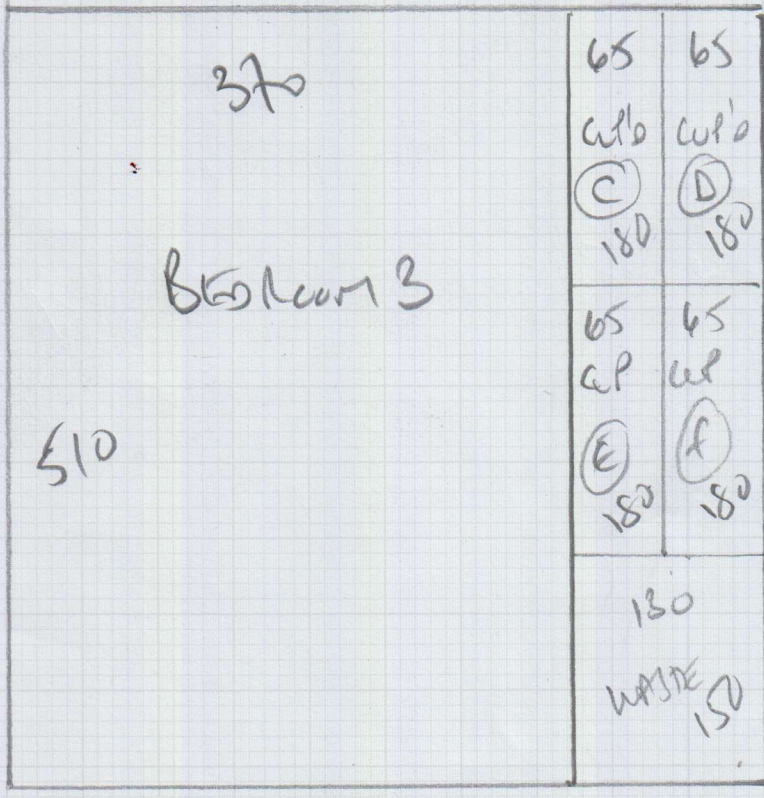 370
BEDROOM 3
510
65
CUP'D
C
180
65
CUP'D
D
180
65
CUP
E
180
65
CUP
F
180
130
WASTE
150